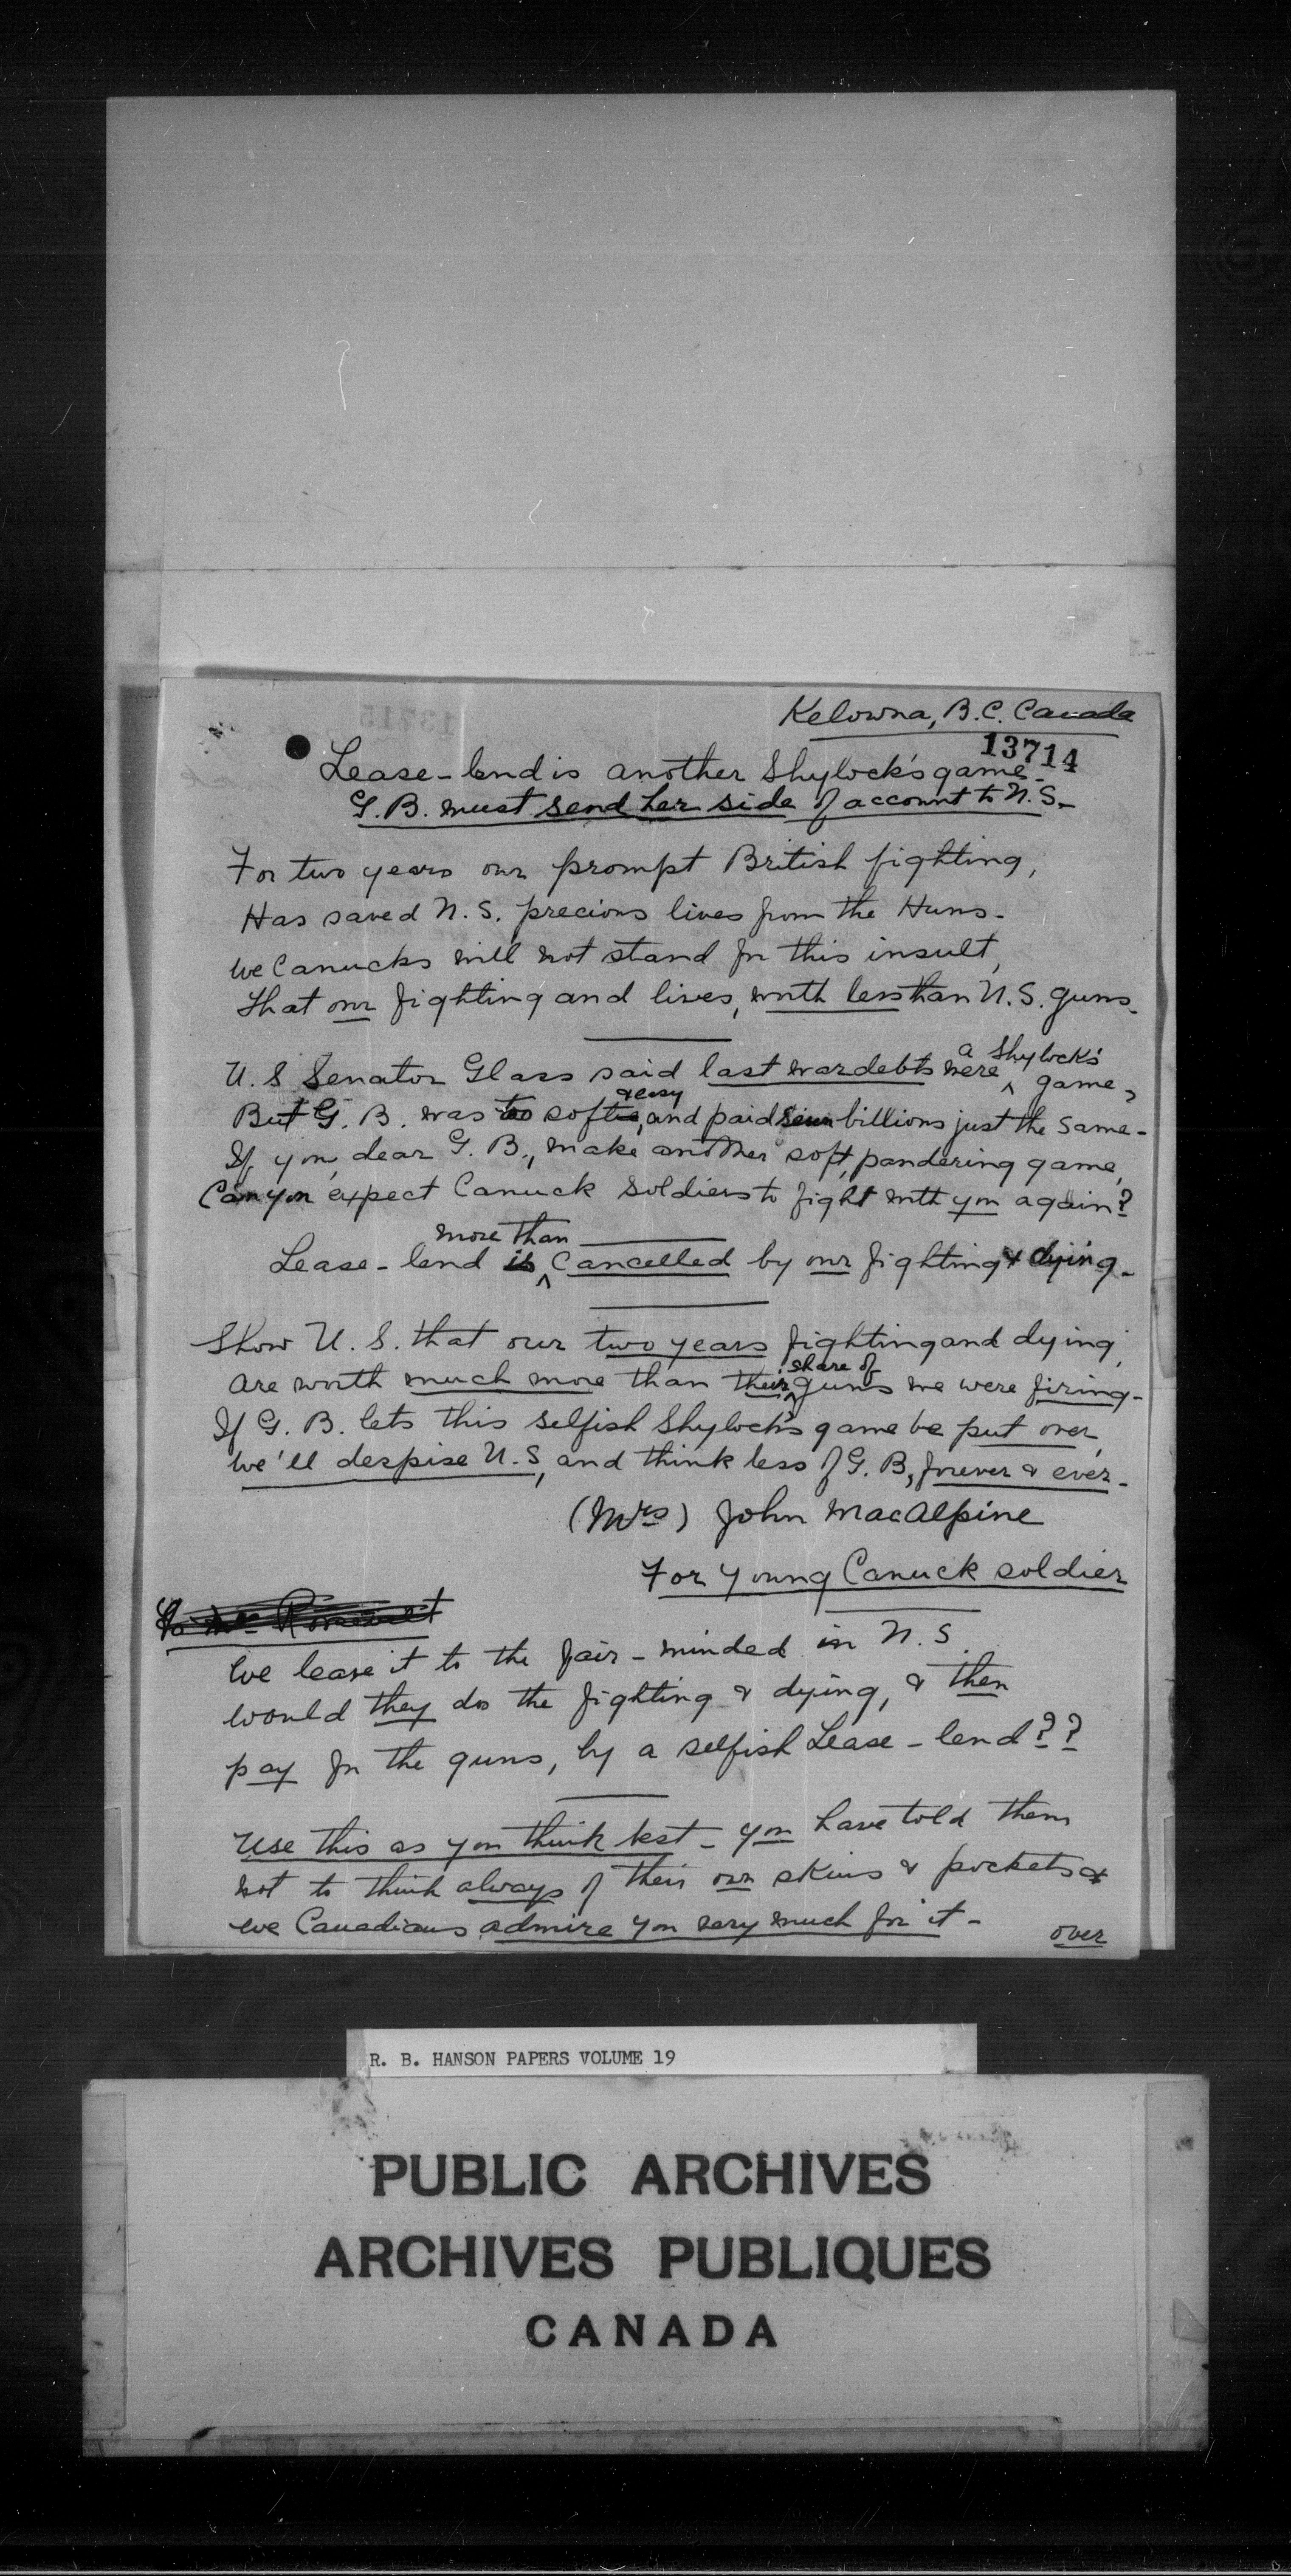 Kelowna, B.C. Canada
13714
Lease-lend is another Shylock's game-
G.B. must send her side of account to U.S-
For two years our prompt British fighting,
Has saved U.S. precious lives from the Huns-
We Canucks will not stand for this insult,
That our fighting and lives, worth less than U.S. guns-
U.S Senator Glass said last war debts were a Shylock's game,
But G.B. was too soft & easy, and paid seven billions just the same-
If you, dear G.B., make another soft, pandering game,
Can you expect Canuck soldiers to fight with you again?
Lease-lend is more than cancelled by our fighting & dying-
Show U.S. that our two years fighting and dying,
are worth much more than their share of guns we were firing-
If G.B. lets this selfish Shylock's game be put over,
We'll despise U.S, and think less of G.B, forever & ever-
(Mrs) John MacAlpine
For Young Canuck soldier
To Mr Roosevelt
We leave it to the fair-minded in U.S.
would they do the fighting & dying, & then
pay for the guns, by a selfish Lease-lend??
Use this as you think best- you have told them
not to think always of their own skins & pockets &
we Canadians admire you very much for it-
over
R. B. HANSON PAPERS VOLUME 19
PUBLIC ARCHIVES
ARCHIVES PUBLIQUES
CANADA